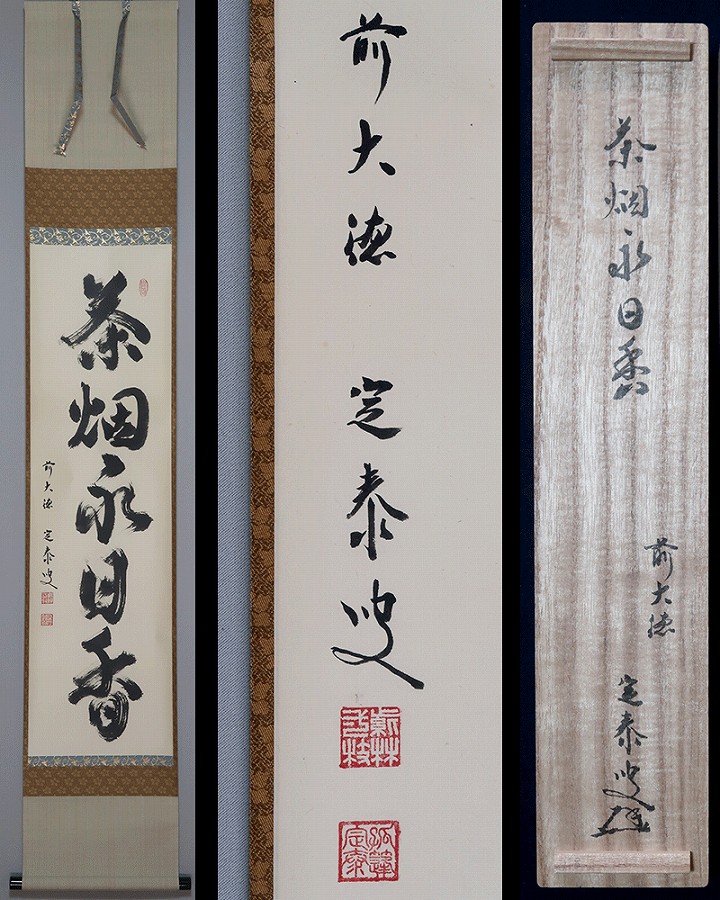 茶烟永日香
前大徳 定泰叟
前大徳 定泰叟
孤篷定泰
茶烟永日香
前大徳 定泰叟